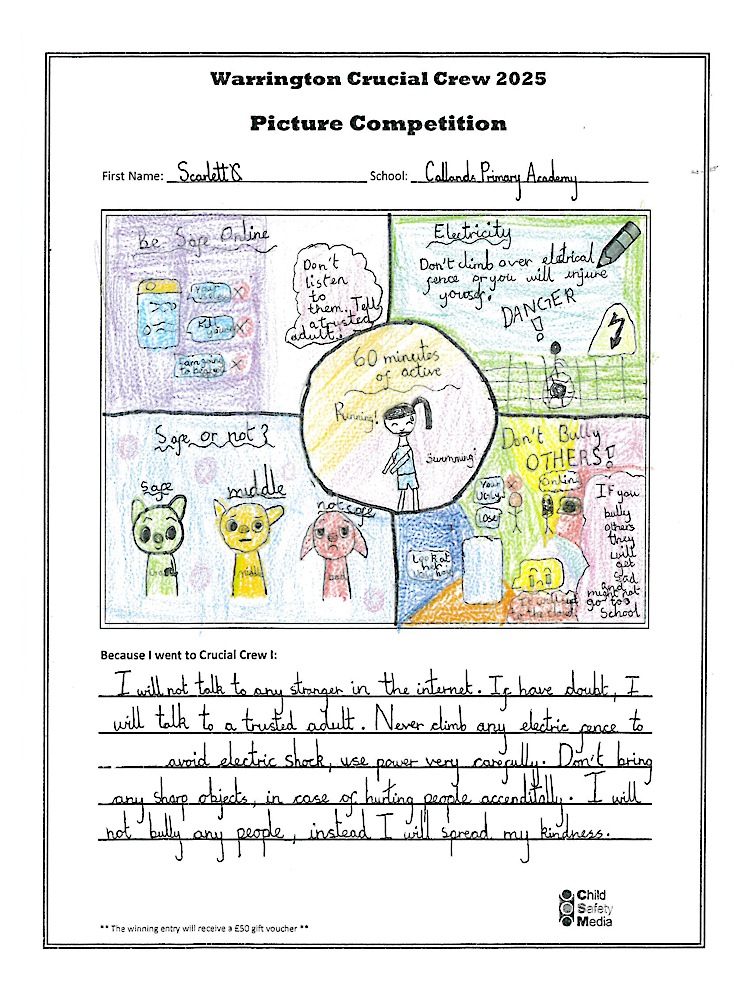 Warrington Crucial Crew 2025
Picture Competition
First Name: Scarlett S
School: Callands Primary Academy
Be Safe Online
Don't
listen
to
them. Tell
a trusted
adult!
Your
I am going
Electricity
Don't climb over eletrical
fence or you will injure
yourself.
DANGER
!
60 minutes
of active
Running!
Swimming!
Safe or not?
safe
middle
not safe
middle
bad
Don't Bully
OTHERS!
Your
Ugly!
Loser
Look at
her
If you
bully
others
they
will
get
sad
and
might not
go to
School
Because I went to Crucial Crew I:
I will not talk to any stranger in the internet. If have doubt, I
will talk to a trusted adult. Never climb any electric fence to
avoid electric shock, use power very carefully. Don't bring
any sharp objects, in case of hurting people accenditally. I will
not bully any people, instead I will spread my kindness.
Child
Safety
Media
** The winning entry will receive a £50 gift voucher **